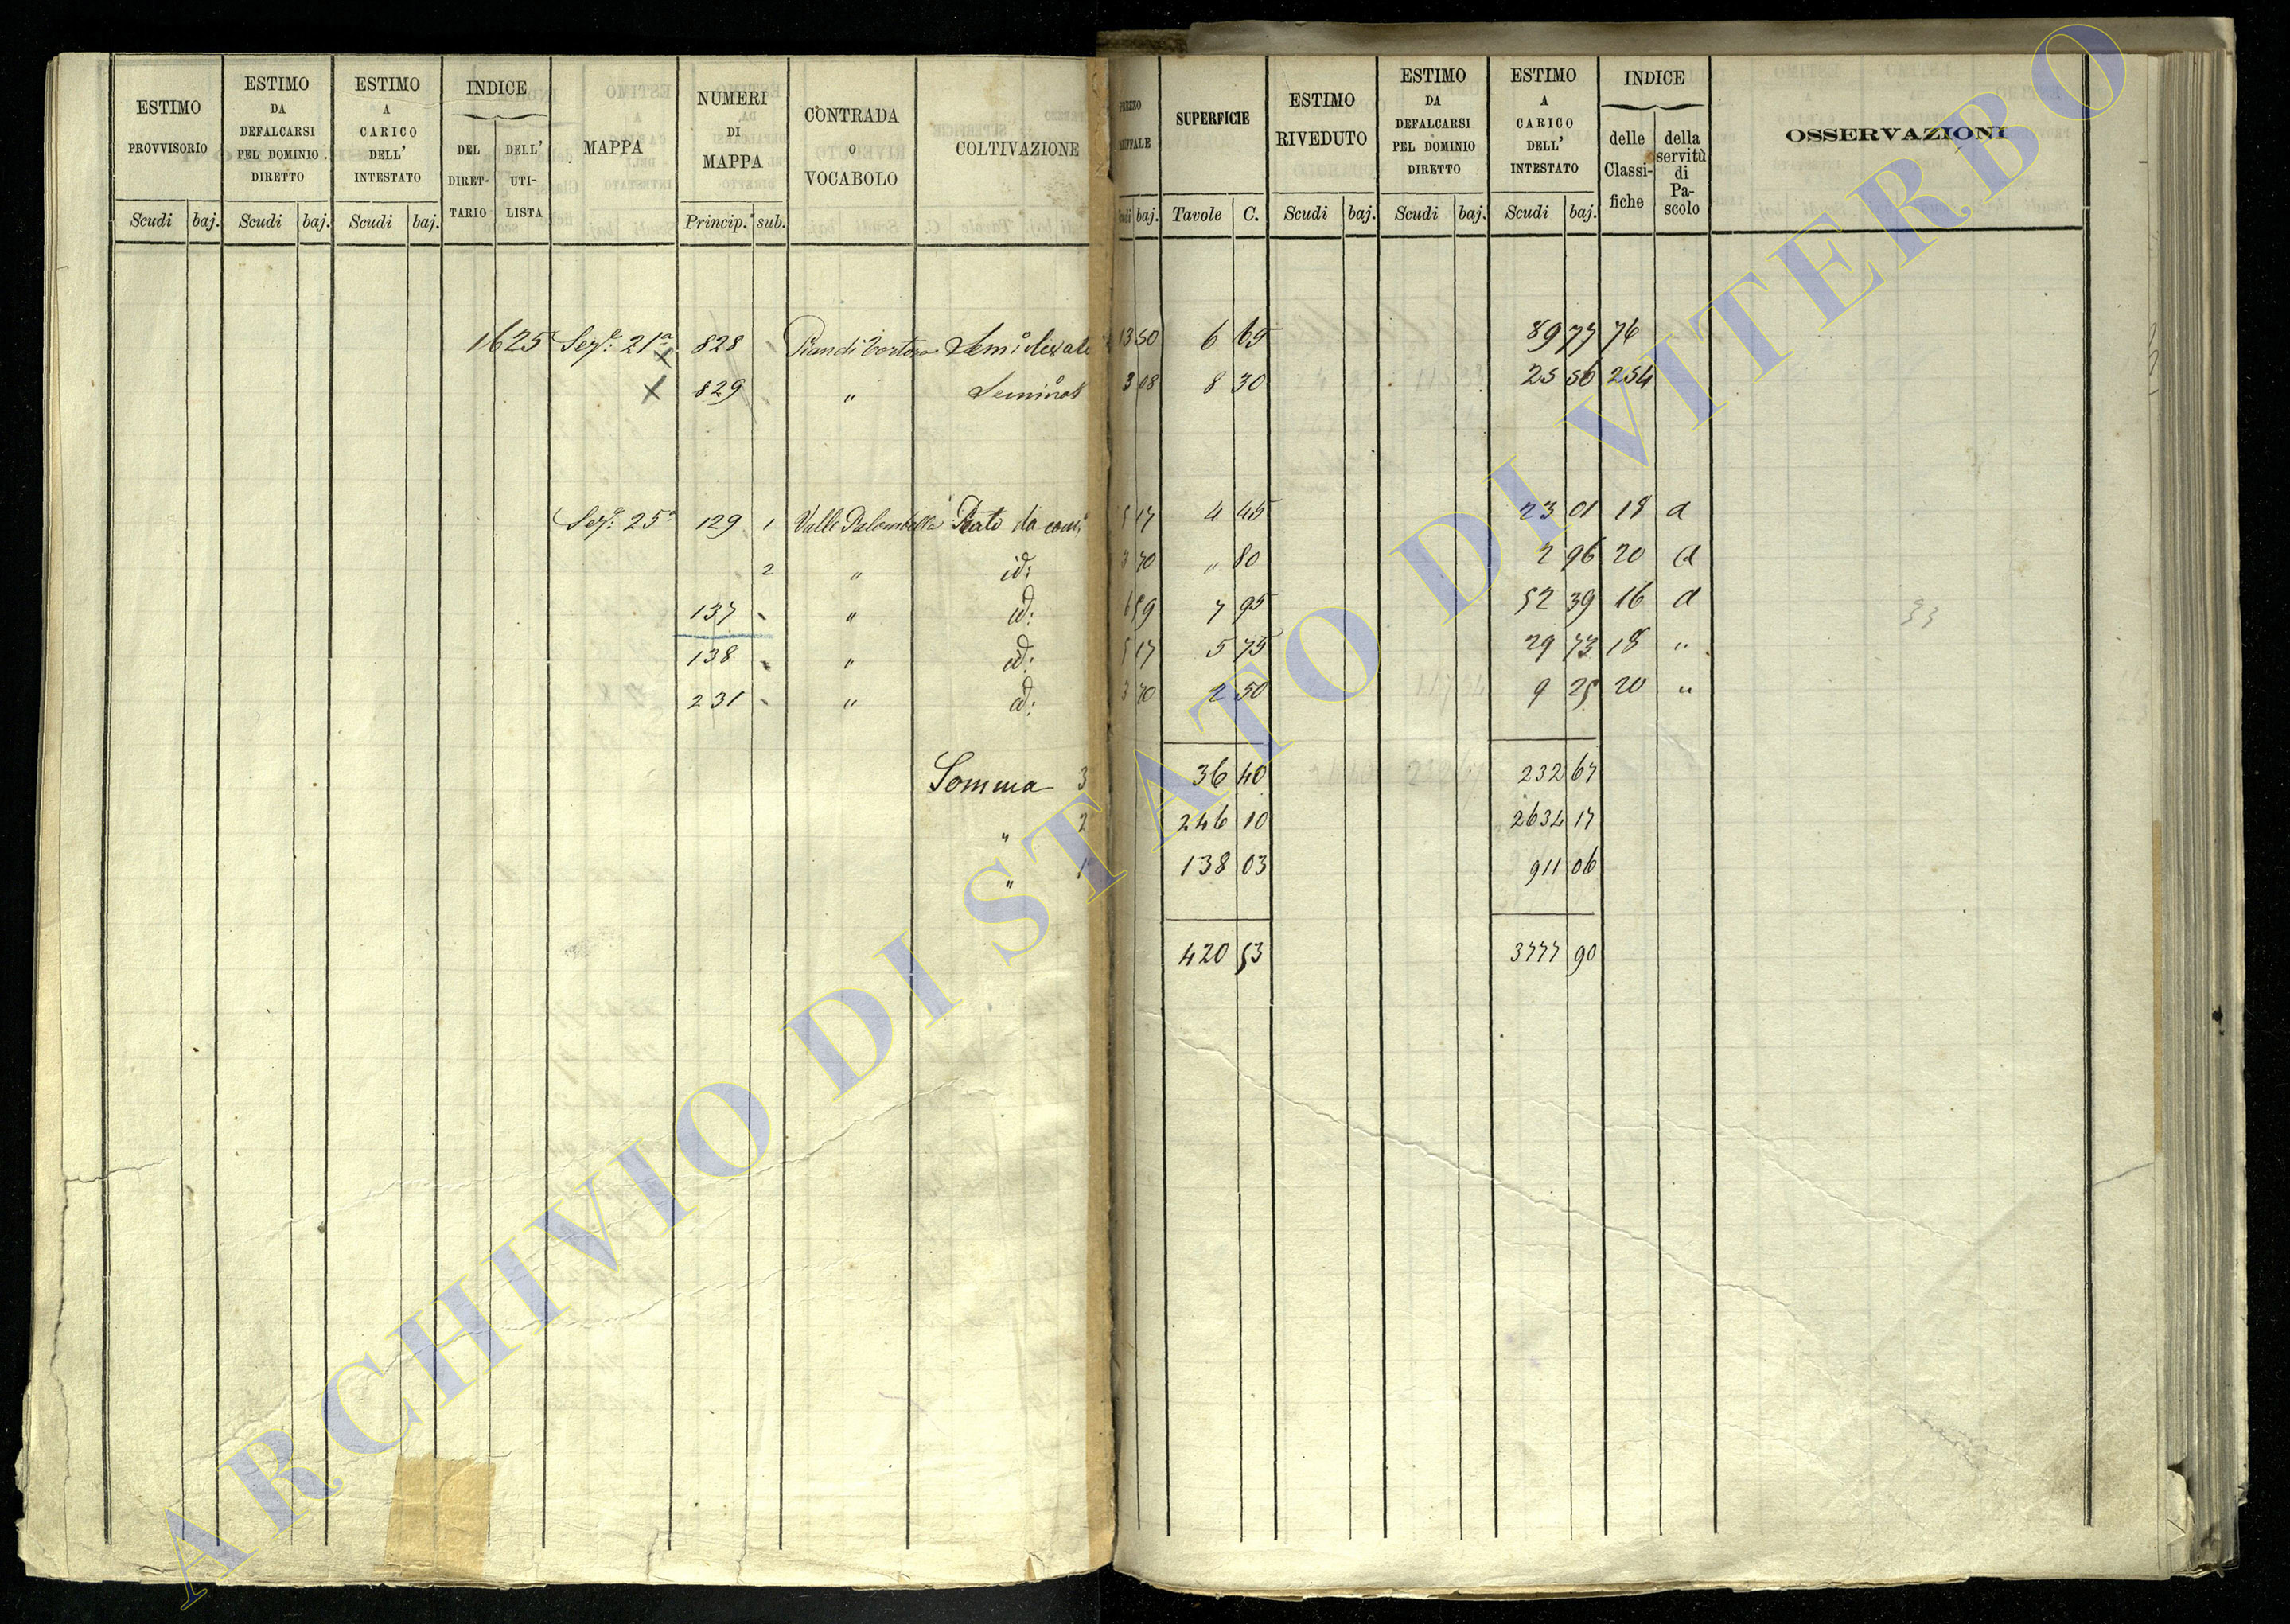 ESTIMO PROVVISORIO Scudi baj.
ESTIMO DA DEFALCARSI PEL DOMINIO DIRETTO Scudi baj.
ESTIMO A CARICO DELL' INTESTATO Scudi baj.
INDICE DEL DIRET-TARIO DELL' UTI-LISTA
MAPPA
NUMERI DI MAPPA Princip. sub.
CONTRADA O VOCABOLO
COLTIVAZIONE
SUPERFICIE Tavole C.
ESTIMO RIVEDUTO Scudi baj.
ESTIMO DA DEFALCARSI PEL DOMINIO DIRETTO Scudi baj.
ESTIMO A CARICO DELL' INTESTATO Scudi baj.
INDICE delle Classi-fiche della servitù di Pa-scolo
OSSERVAZIONI
1625 Sez.e 21a 828 13 50 6 65 89 77 76
829 " 3 08 8 30 25 56 254
Sez.e 25a 129 1 Valle Palombella Prato da 5 17 4 45 23 01 18 a
2 " id: 3 70 " 80 2 96 20 a
137 " id: 6 59 7 95 52 39 16 a
138 " id: 5 17 5 75 29 73 18 "
231 " id: 3 70 2 50 9 25 20 "
Somma 3 36 40 232 67
" 2 246 10 2634 17
" 1 138 03 911 06
420 53 3777 90
33
ARCHIVIO DI STATO DI VITERBO